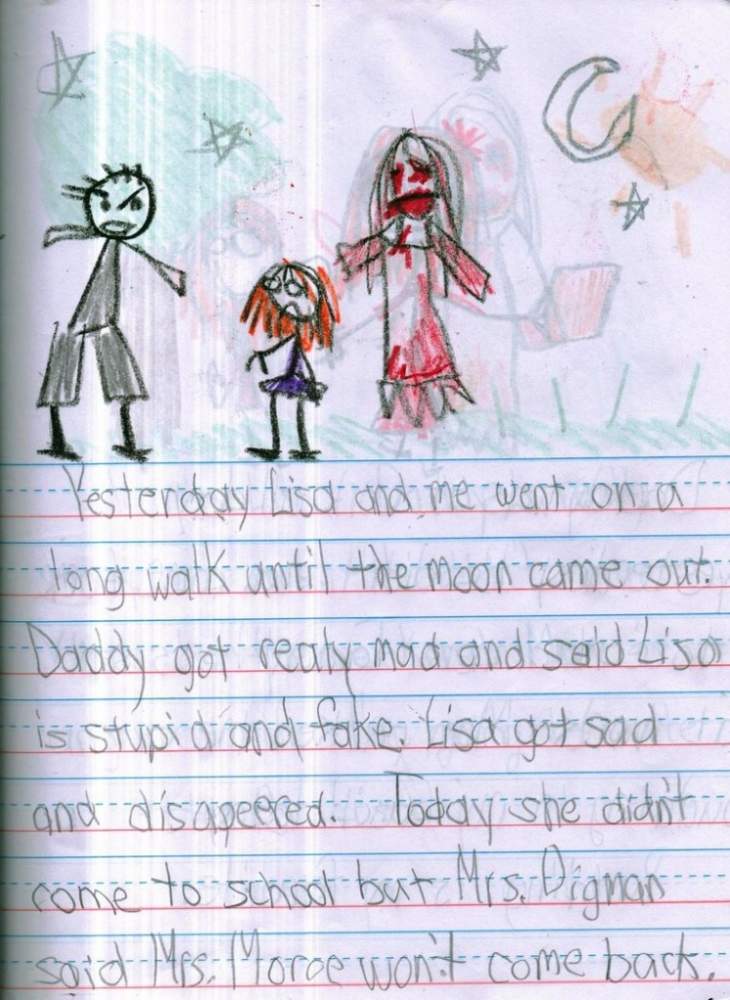 Yesterday Lisa and me went on a
long walk until the moon came out.
Daddy got realy mad and said Lisa
is stupid and fake. Lisa got sad
and disapeered. Today she didn't
come to school but Mrs. Digman
said Mrs. Moroe won't come back.